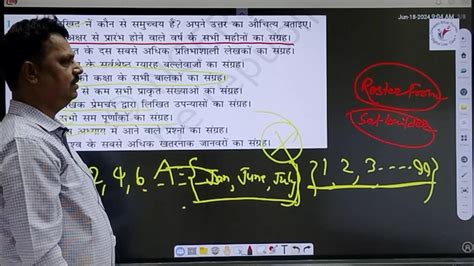 Jun-18-2024 09:04 AM
में कौन से समुच्चय है? अपने उत्तर का औचित्य बताइए।
अक्षर से प्रारंभ होने वाले वर्ष के सभी महीनों का संग्रह।
के दस सबसे अधिक प्रतिभाशाली लेखकों का संग्रह।
के सर्वश्रेष्ठ ग्यारह बल्लेबाजों का संग्रह।
की कक्षा के सभी बालकों का संग्रह।
से कम सभी प्राकृत संख्याओं का संग्रह।
प्रेमचंद द्वारा लिखित उपन्यासों का संग्रह।
सभी सम पूर्णांकों का संग्रह।
अध्याय में आने वाले प्रश्नों का संग्रह।
के सबसे अधिक खतरनाक जानवरों का संग्रह।
Roster Form
Set-builder
2, 4, 6 A = {Jan, June, July} {1, 2, 3....99}